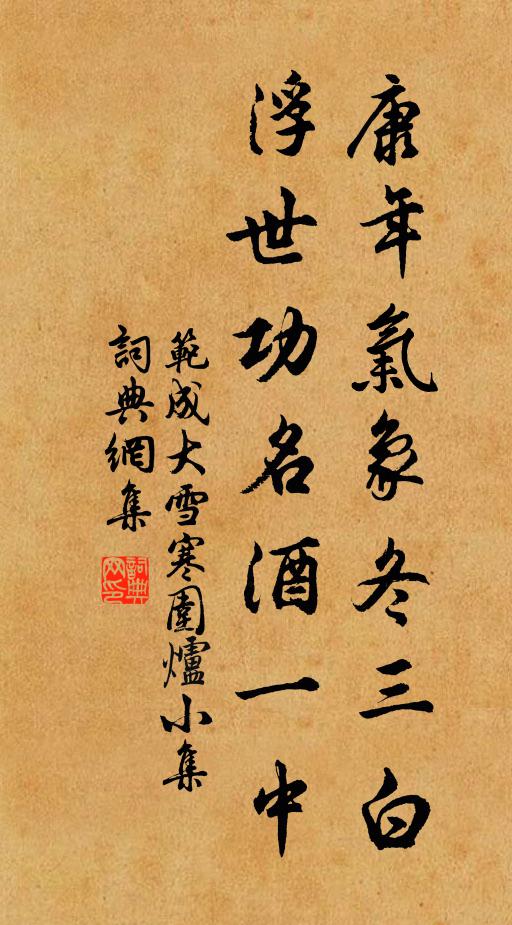 康年氣象冬三白
浮世功名酒一中
範成大雪寒圍爐小集
詞典網集
詞典
网印